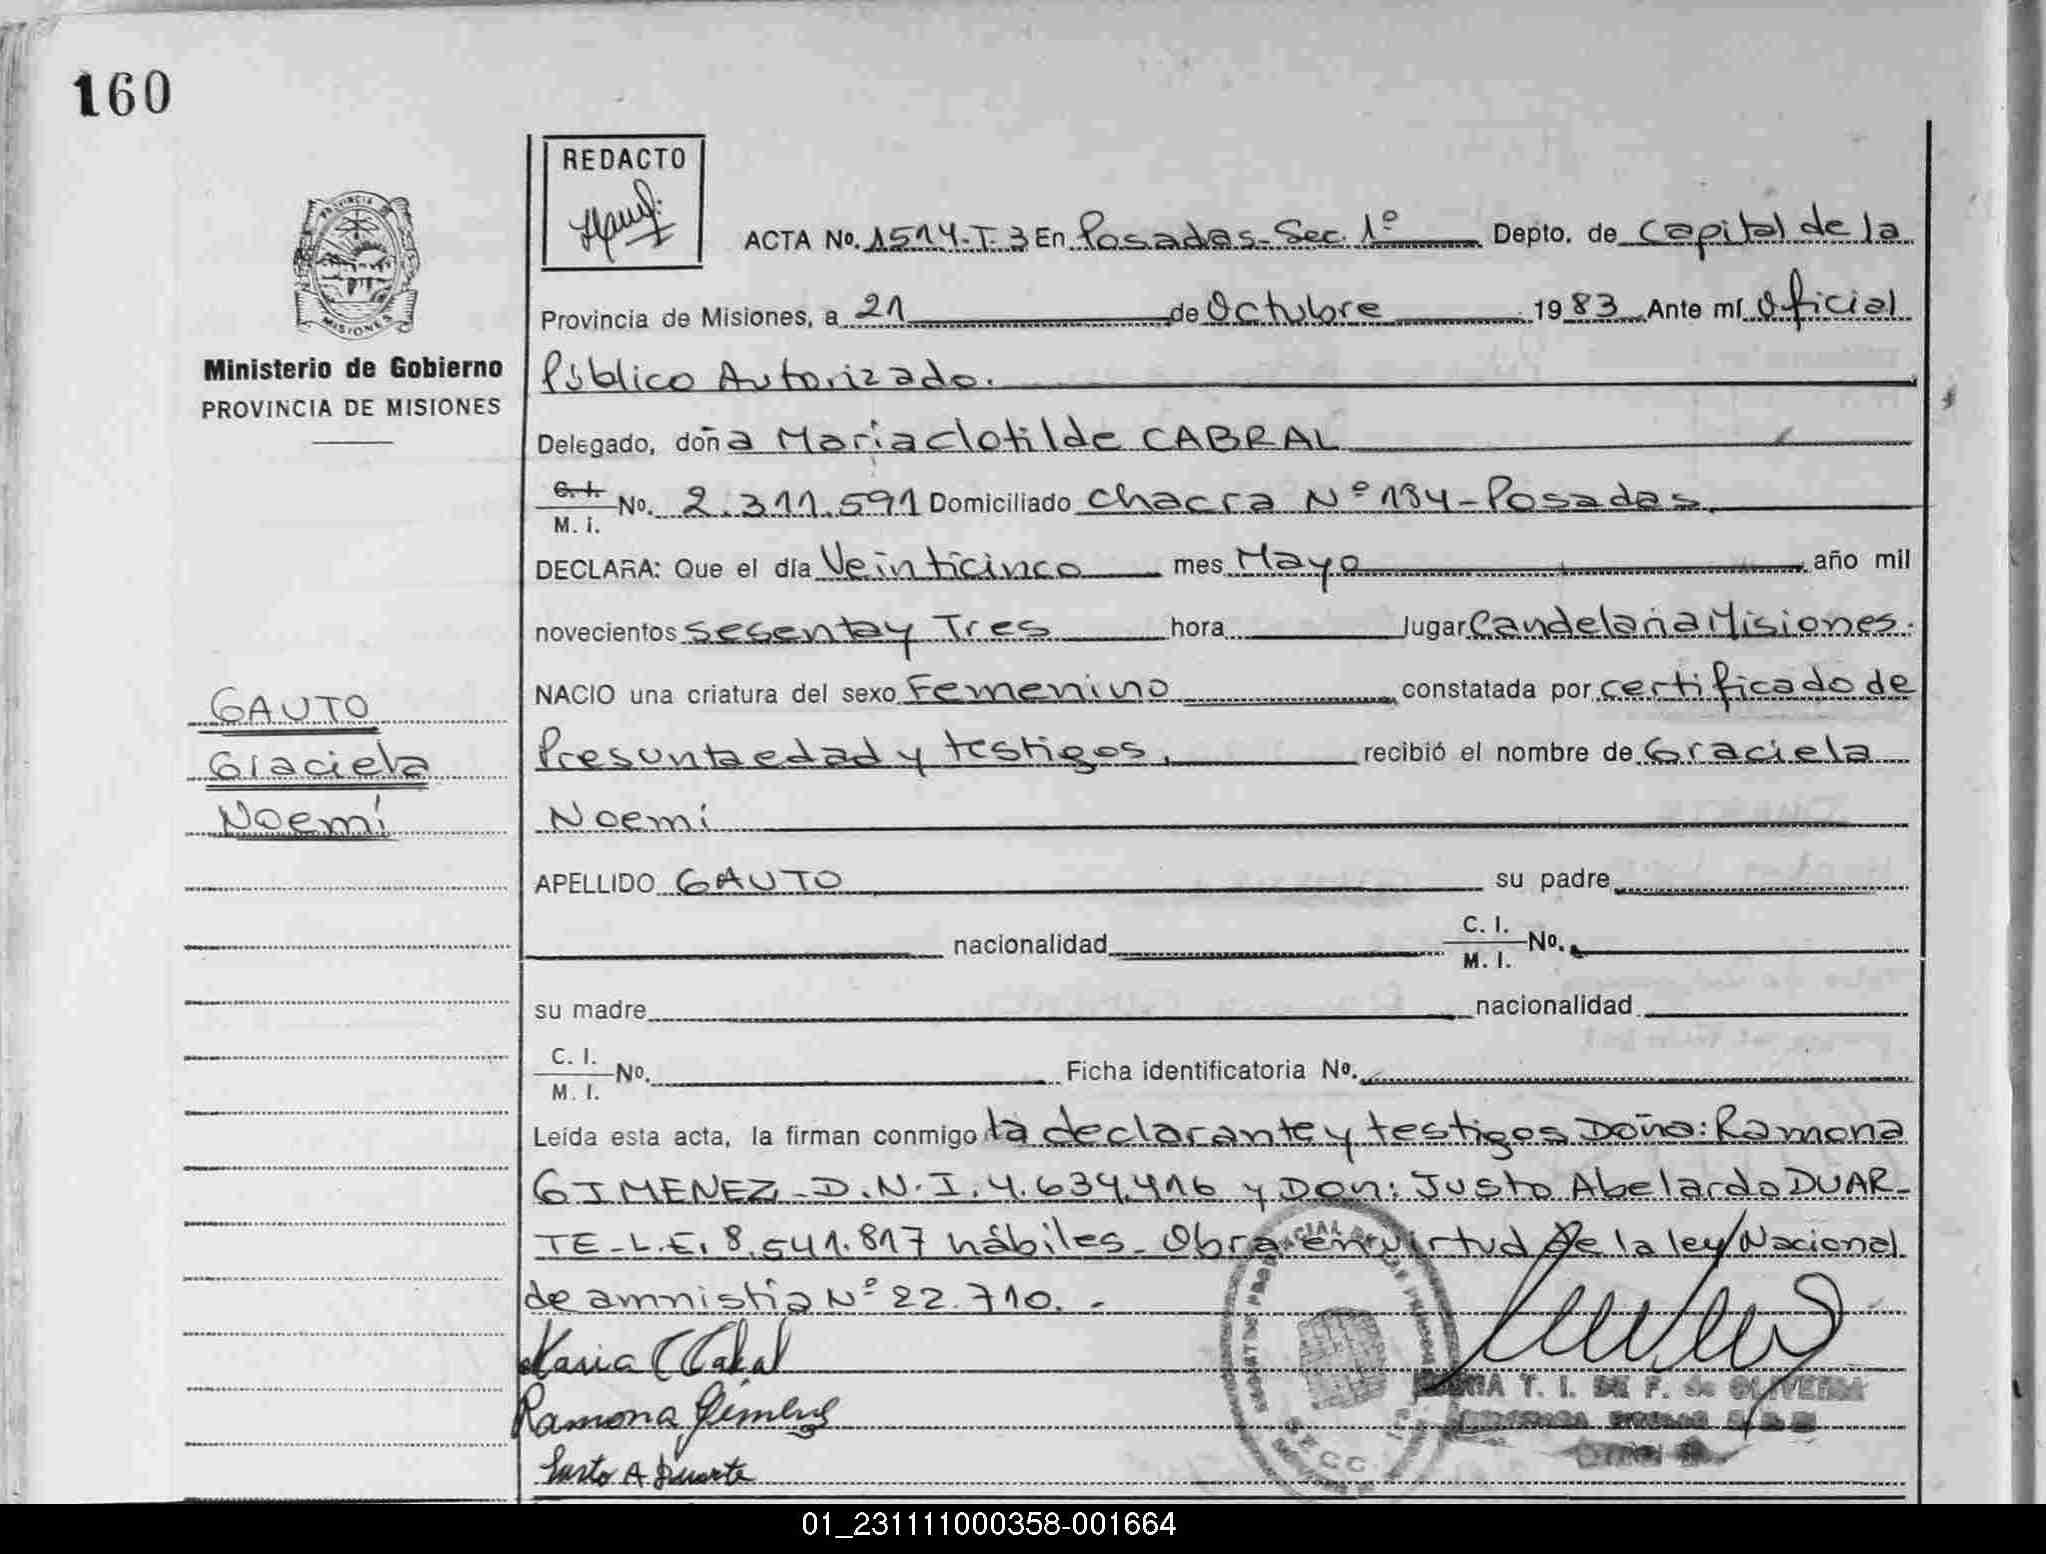 160
REDACTO
ACTA No. 1514-T.3 En Posadas-Sec. 1º Depto. de Capital de la
Provincia de Misiones, a 21 de Octubre 1983 Ante mí Oficial
Ministerio de Gobierno
PROVINCIA DE MISIONES
Público Autorizado.
Delegado, doña Maria Clotilde CABRAL
C. I. M. I. No. 2.311.591 Domiciliado Chacra Nº 184-Posadas.
DECLARA: Que el día Veinticinco mes Mayo año mil
novecientos Sesenta y Tres hora lugar Candelaria Misiones.
NACIO una criatura del sexo Femenino constatada por certificado de
Presunta edad y testigos, recibió el nombre de Graciela
Noemí
GAUTO
Graciela
Noemí
APELLIDO GAUTO su padre
nacionalidad C. I. M. I. No.
su madre nacionalidad
C. I. M. I. No. Ficha identificatoria No.
Leída esta acta, la firman conmigo la declarante y testigos Doña: Ramona
GIMENEZ-D.N.I. 4.634.416 y Don: Justo Abelardo DUAR-
TE-L.E. 8.541.817 hábiles. Obra en virtud de la ley Nacional
de amnistía Nº 22.710.-
Maria C Cabral
Ramona Gimenez
Justo A Duarte
T. I. DE F. de OLIVEIRA
SECC. 1ª
01_231111000358-001664